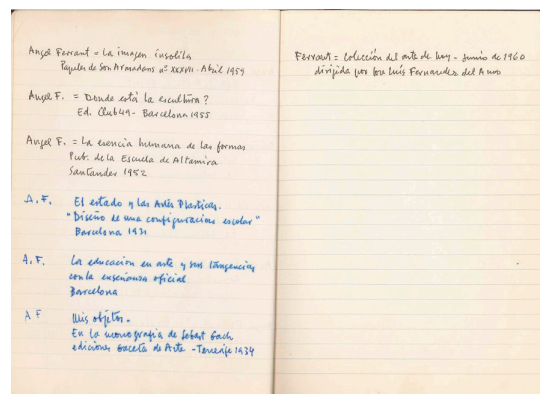 Angel Ferrant = La imagen insolita
Papeles de Son Armadans nº XXXVII - Abril 1959
Angel F. = Donde está la escultura?
Ed. Club 49 - Barcelona 1955
Angel F. = La esencia humana de las formas
Pub. de la Escuela de Altamira
Santander 1952
A. F. El estado y las Artes Plasticas.
"Diseño de una configuracion escolar"
Barcelona 1931
A. F. La educacion en arte y sus tangencias
con la enseñanza oficial
Barcelona
A F Mis objetos.
En la monografia de Sebert Gach
ediciones Gaceta de Arte - Tenerife 1934
Ferrant = Colección del arte de hoy - Junio de 1960
dirigida por Jose Luis Fernandez del Amo